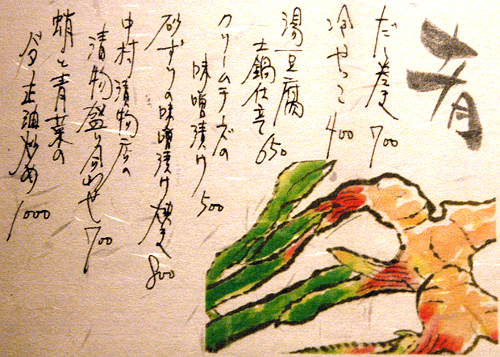 肴
だし巻 700
冷やっこ 400
湯豆腐
土鍋仕立 650
クリームチーズの
味噌漬け 500
砂ずりの味噌漬け焼 800
中村漬物店の
漬物盛り合わせ 700
蛸と青菜の
バター正油炒め 1000